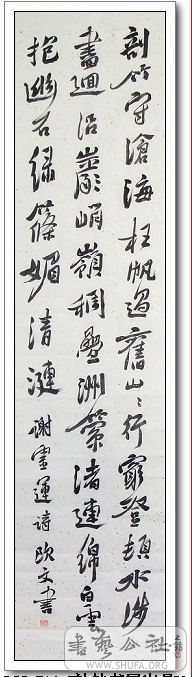 剖竹守滄海枉帆過舊山〻行窮登頓水涉
盡迴沿巖峭嶺稠疊洲縈渚連綿白雲
抱幽石綠篠媚清漣 謝靈運詩 欧文書
書法公社
WWW.SHUFA.ORG